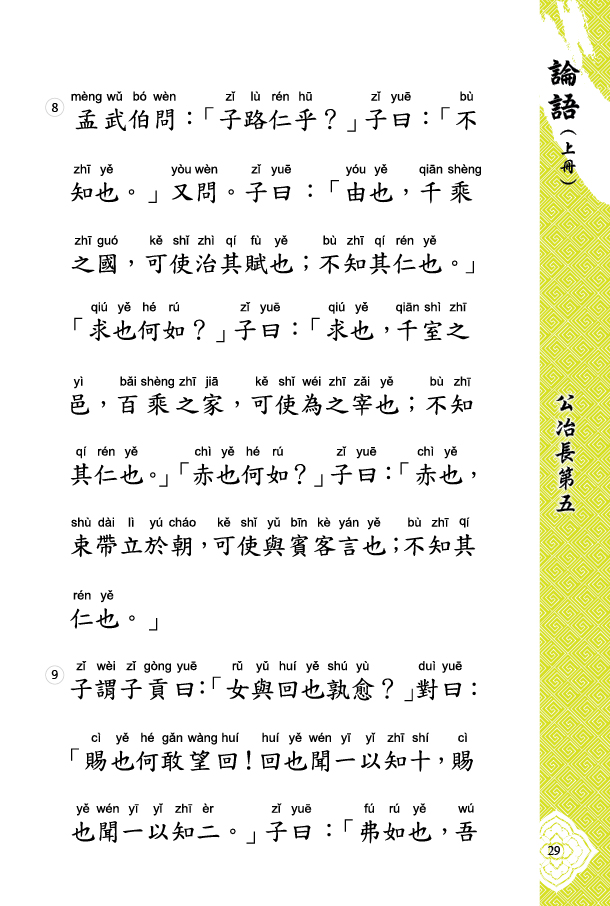 mèng wǔ bó wèn zǐ lù rén hū zǐ yuē bù
8 孟武伯問：「子路仁乎？」子曰：「不
zhī yě yòu wèn zǐ yuē yóu yě qiān shèng
知也。」又問。子曰：「由也，千乘
zhī guó kě shǐ zhì qí fù yě bù zhī qí rén yě
之國，可使治其賦也；不知其仁也。」
qiú yě hé rú zǐ yuē qiú yě qiān shì zhī
「求也何如？」子曰：「求也，千室之
yì bǎi shèng zhī jiā kě shǐ wéi zhī zǎi yě bù zhī
邑，百乘之家，可使為之宰也；不知
qí rén yě chì yě hé rú zǐ yuē chì yě
其仁也。」「赤也何如？」子曰：「赤也，
shù dài lì yú cháo kě shǐ yǔ bīn kè yán yě bù zhī qí
束帶立於朝，可使與賓客言也；不知其
rén yě
仁也。」
zǐ wèi zǐ gòng yuē rǔ yǔ huí yě shú yù duì yuē
9 子謂子貢曰：「女與回也孰愈？」對曰：
cì yě hé gǎn wàng huí huí yě wén yī yǐ zhī shí cì
「賜也何敢望回！回也聞一以知十，賜
yě wén yī yǐ zhī èr zǐ yuē fú rú yě wú
也聞一以知二。」子曰：「弗如也，吾
論語（上冊）
公冶長第五
29